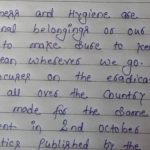 ness and Hygiene are
nal belongings or our
to make suse to kee
ean whereves we go.
ocuses on the eradica
all over the Country
made for the same
ent in 2nd october
tics published by the